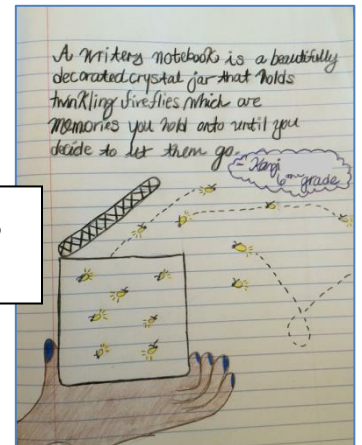 A writers notebook is a beautifully
decorated crystal jar that holds
twinkling fireflies which are
memories you hold onto until you
decide to let them go.
6th grade